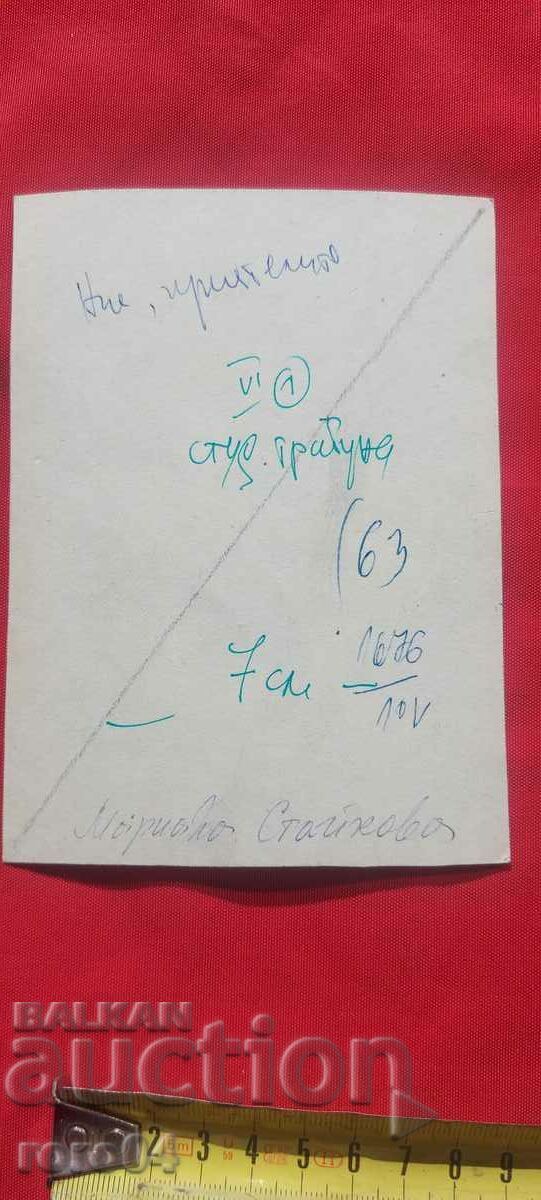 Ние, приятелите
VI 1
студ. трибуна
(63
7 см 1676
10V
Марио Стайкова
BALKAN
auction
roro04
2 3 4 5 6 7 8 9